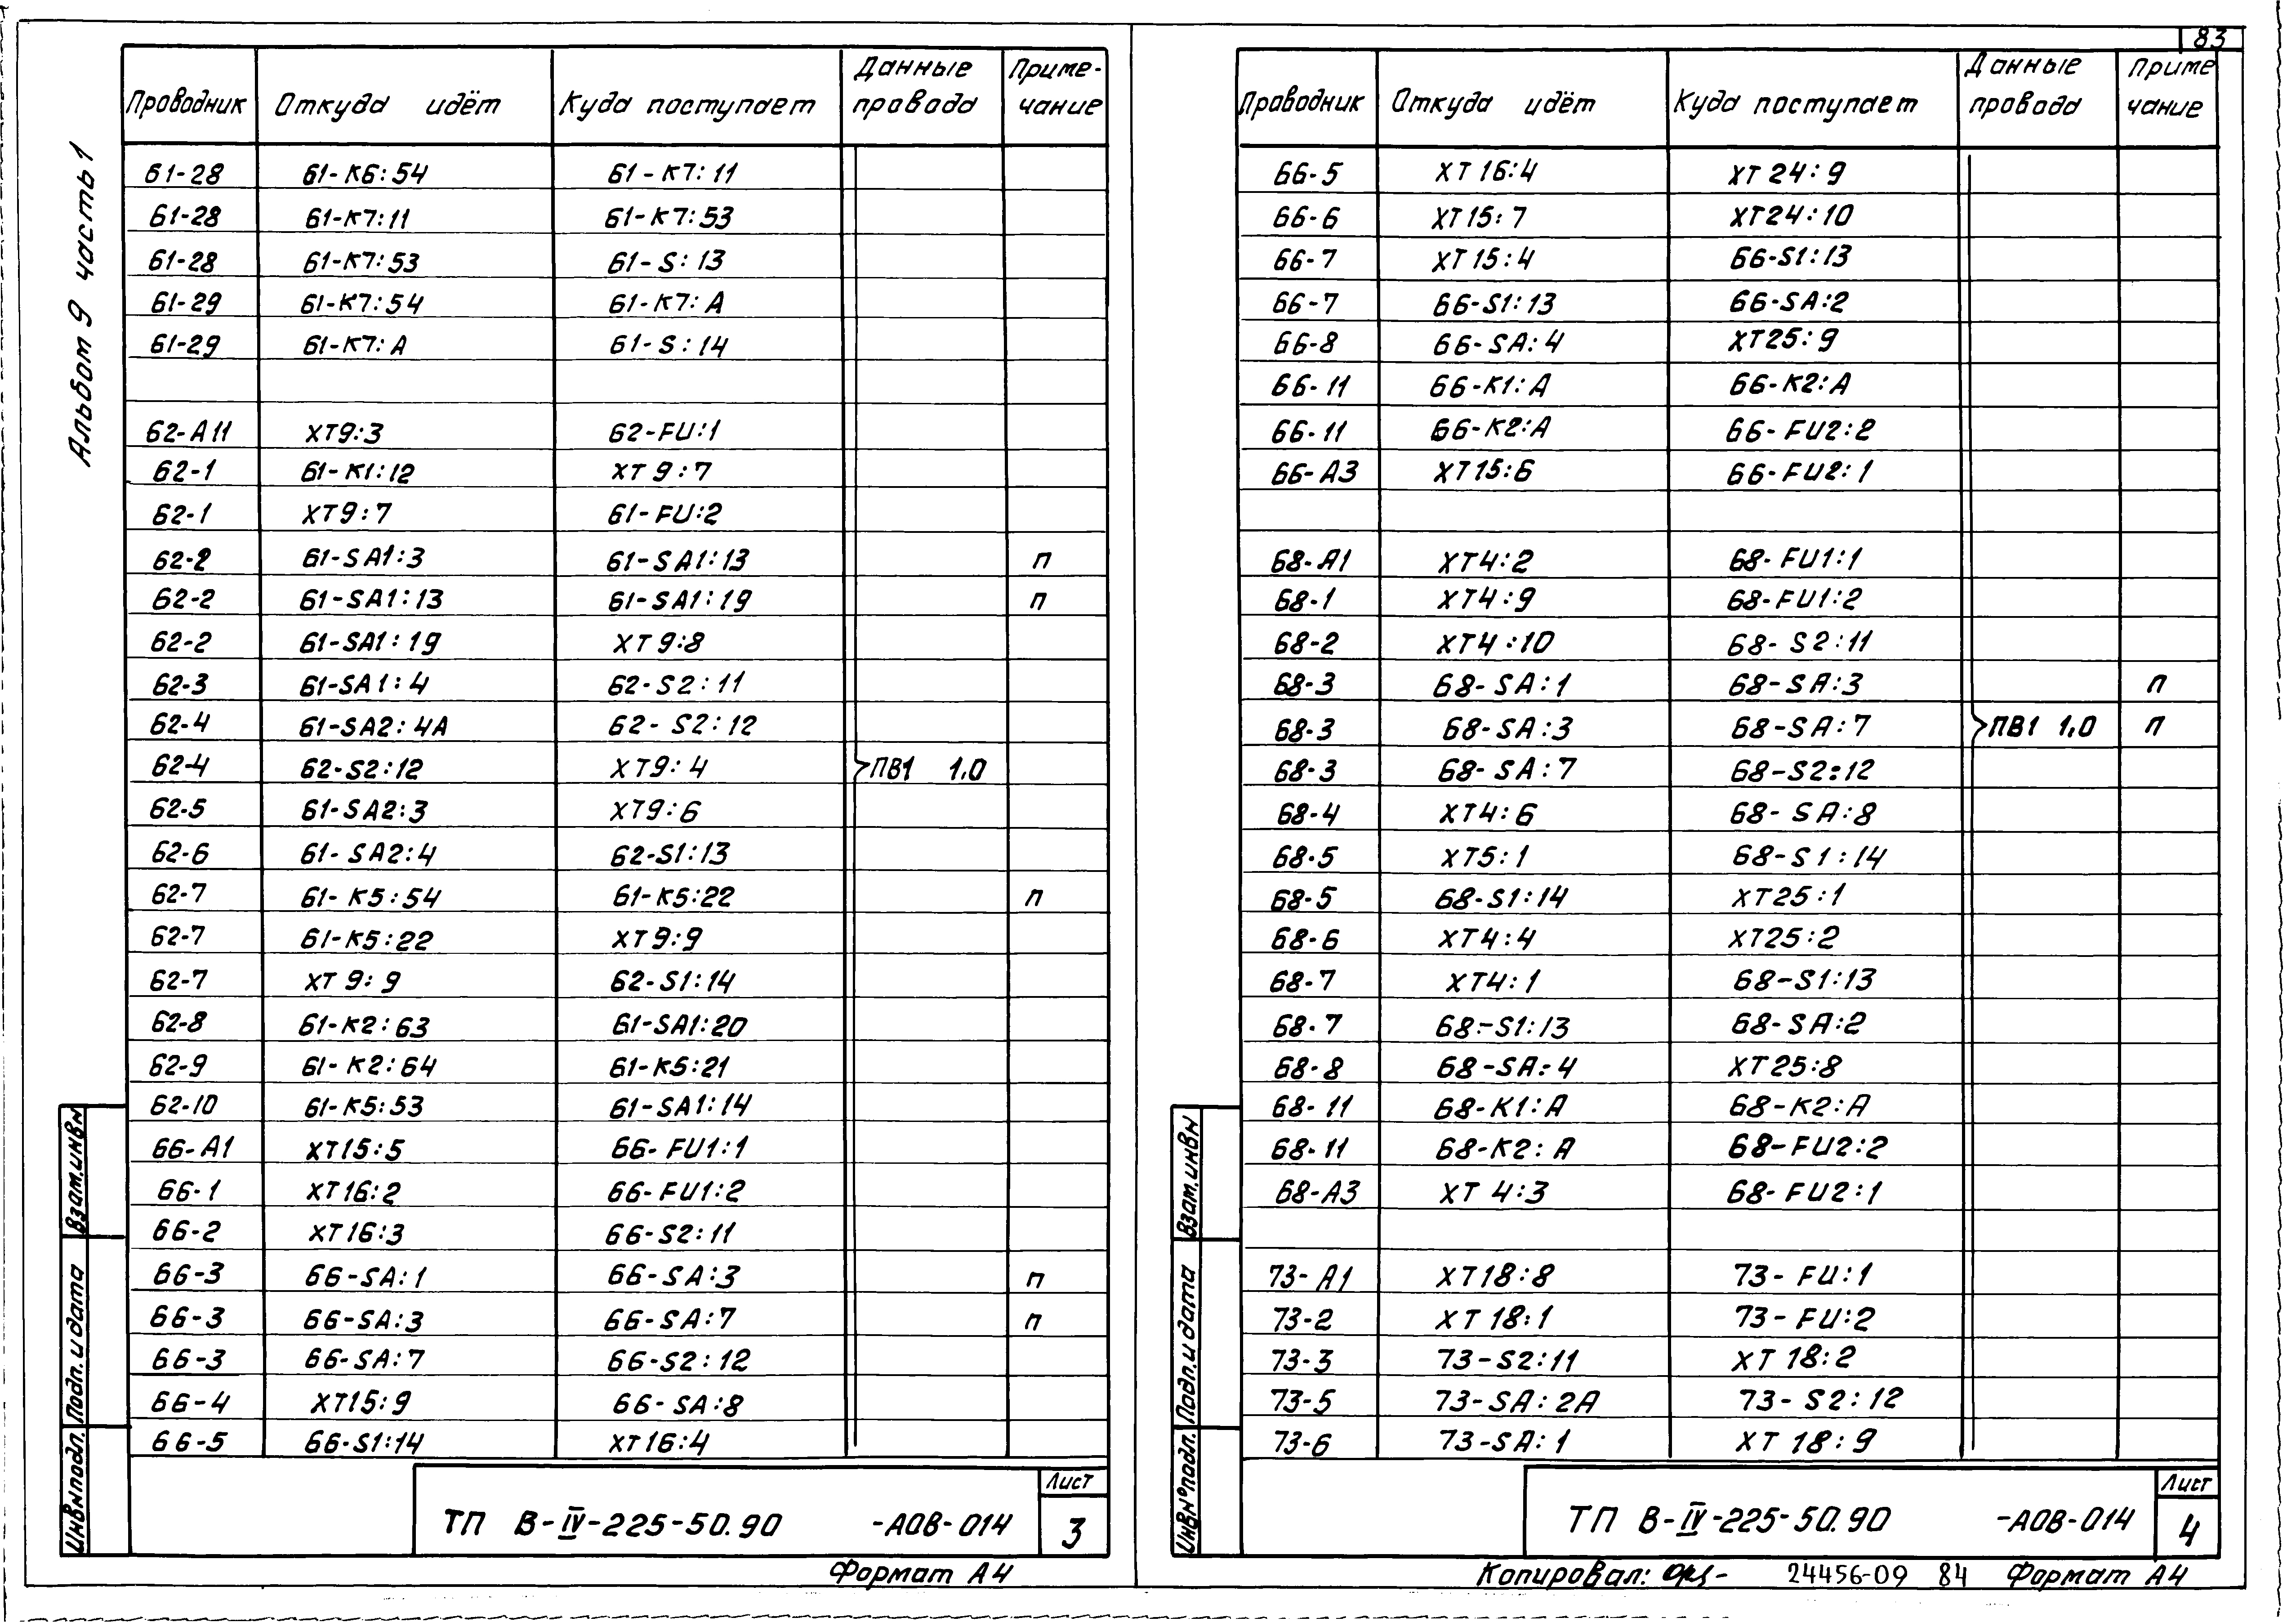 83
Альбом 9 часть 1
Проводник Откуда идёт Куда поступает Данные провода Приме-чание
61-28 61-К6:54 61-К7:11
61-28 61-К7:11 61-К7:53
61-28 61-К7:53 61-S:13
61-29 61-К7:54 61-К7:А
61-29 61-К7:А 61-S:14
62-А11 ХТ9:3 62-FU:1
62-1 61-К1:12 ХТ9:7
62-1 ХТ9:7 61-FU:2
62-2 61-SA1:3 61-SA1:13 п
62-2 61-SA1:13 61-SA1:19 п
62-2 61-SA1:19 ХТ9:8
62-3 61-SA1:4 62-S2:11
62-4 61-SA2:4A 62-S2:12
62-4 62-S2:12 ХТ9:4 ПВ1 1,0
62-5 61-SA2:3 ХТ9:6
62-6 61-SA2:4 62-S1:13
62-7 61-К5:54 61-К5:22 п
62-7 61-К5:22 ХТ9:9
62-7 ХТ9:9 62-S1:14
62-8 61-К2:63 61-SA1:20
62-9 61-К2:64 61-К5:21
62-10 61-К5:53 61-SA1:14
66-А1 ХТ15:5 66-FU1:1
66-1 ХТ16:2 66-FU1:2
66-2 ХТ16:3 66-S2:11
66-3 66-SA:1 66-SA:3 п
66-3 66-SA:3 66-SA:7 п
66-3 66-SA:7 66-S2:12
66-4 ХТ15:9 66-SA:8
66-5 66-S1:14 ХТ16:4
Взам.инвN
Подп. и дата
ИнвNподл.
ТП В-IV-225-50.90 -АОВ-014
Лист
3
Формат А4
Проводник Откуда идёт Куда поступает Данные провода Приме чание
66-5 ХТ16:4 ХТ24:9
66-6 ХТ15:7 ХТ24:10
66-7 ХТ15:4 66-S1:13
66-7 66-S1:13 66-SA:2
66-8 66-SA:4 ХТ25:9
66-11 66-К1:А 66-К2:А
66-11 66-К2:А 66-FU2:2
66-А3 ХТ15:6 66-FU2:1
68-А1 ХТ4:2 68-FU1:1
68-1 ХТ4:9 68-FU1:2
68-2 ХТ4:10 68-S2:11
68-3 68-SA:1 68-SA:3 п
68-3 68-SA:3 68-SA:7 ПВ1 1,0 п
68-3 68-SA:7 68-S2:12
68-4 ХТ4:6 68-SA:8
68-5 ХТ5:1 68-S1:14
68-5 68-S1:14 ХТ25:1
68-6 ХТ4:4 ХТ25:2
68-7 ХТ4:1 68-S1:13
68-7 68-S1:13 68-SA:2
68-8 68-SA:4 ХТ25:8
68-11 68-К1:А 68-К2:А
68-11 68-К2:А 68-FU2:2
68-А3 ХТ4:3 68-FU2:1
73-А1 ХТ18:8 73-FU:1
73-2 ХТ18:1 73-FU:2
73-3 73-S2:11 ХТ18:2
73-5 73-SA:2A 73-S2:12
73-6 73-SA:1 ХТ18:9
Взам.инвN
Подп. и дата
ИнвN°подл.
ТП В-IV-225-50.90 -АОВ-014
Лист
4
Копировал: 24456-09 84 Формат А4